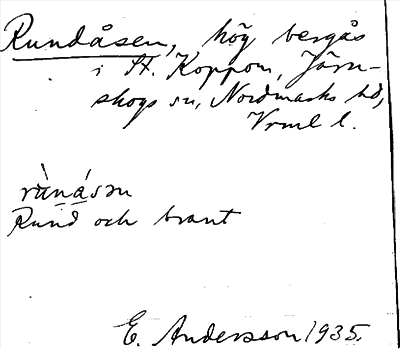 Rundåsen, hög bergås
i St. Koppom, Järn-
skogs sn, Nordmarks hd,
Vrml l.
rànásn
Rund och brant
E. Andersson 1935.